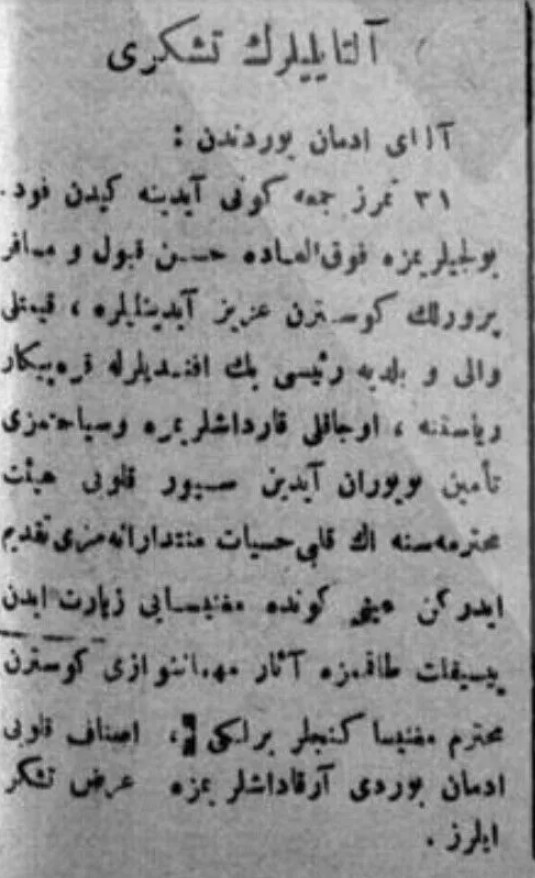 آلتایلیلرك تشکری
آلتای ادمان یوردندن :
۳۱ تموز جمعه کونی آیدینه کیدن فود-
بولجیلریمزه فوق‌العاده حسن قبول و مسافر
پرورلك کوسترن عزیز آیدینلیلره ، قیمتلی
والی و بلدیه رئیسی بك افندیلرله قره‌پیکار
ریاستنه ، اوجاقلی قارداشلریمزه وسیاحتمزی
تأمین بویوران آیدین سپور قلوبی هیئت
محترمه‌سنه اك قلبی حسیات منتدارانه‌مزی تقدیم
ایدرکن عینی کونده مغنیسایی زیارت ایدن
پیسیقلت طاقمزه آثار مهماننوازی کوسترن
محترم مغنیسا کنجلر برلکی ، اصناف قلوبی
ادمان یوردی آرقاداشلریمزه عرض تشکر
ایلرز .